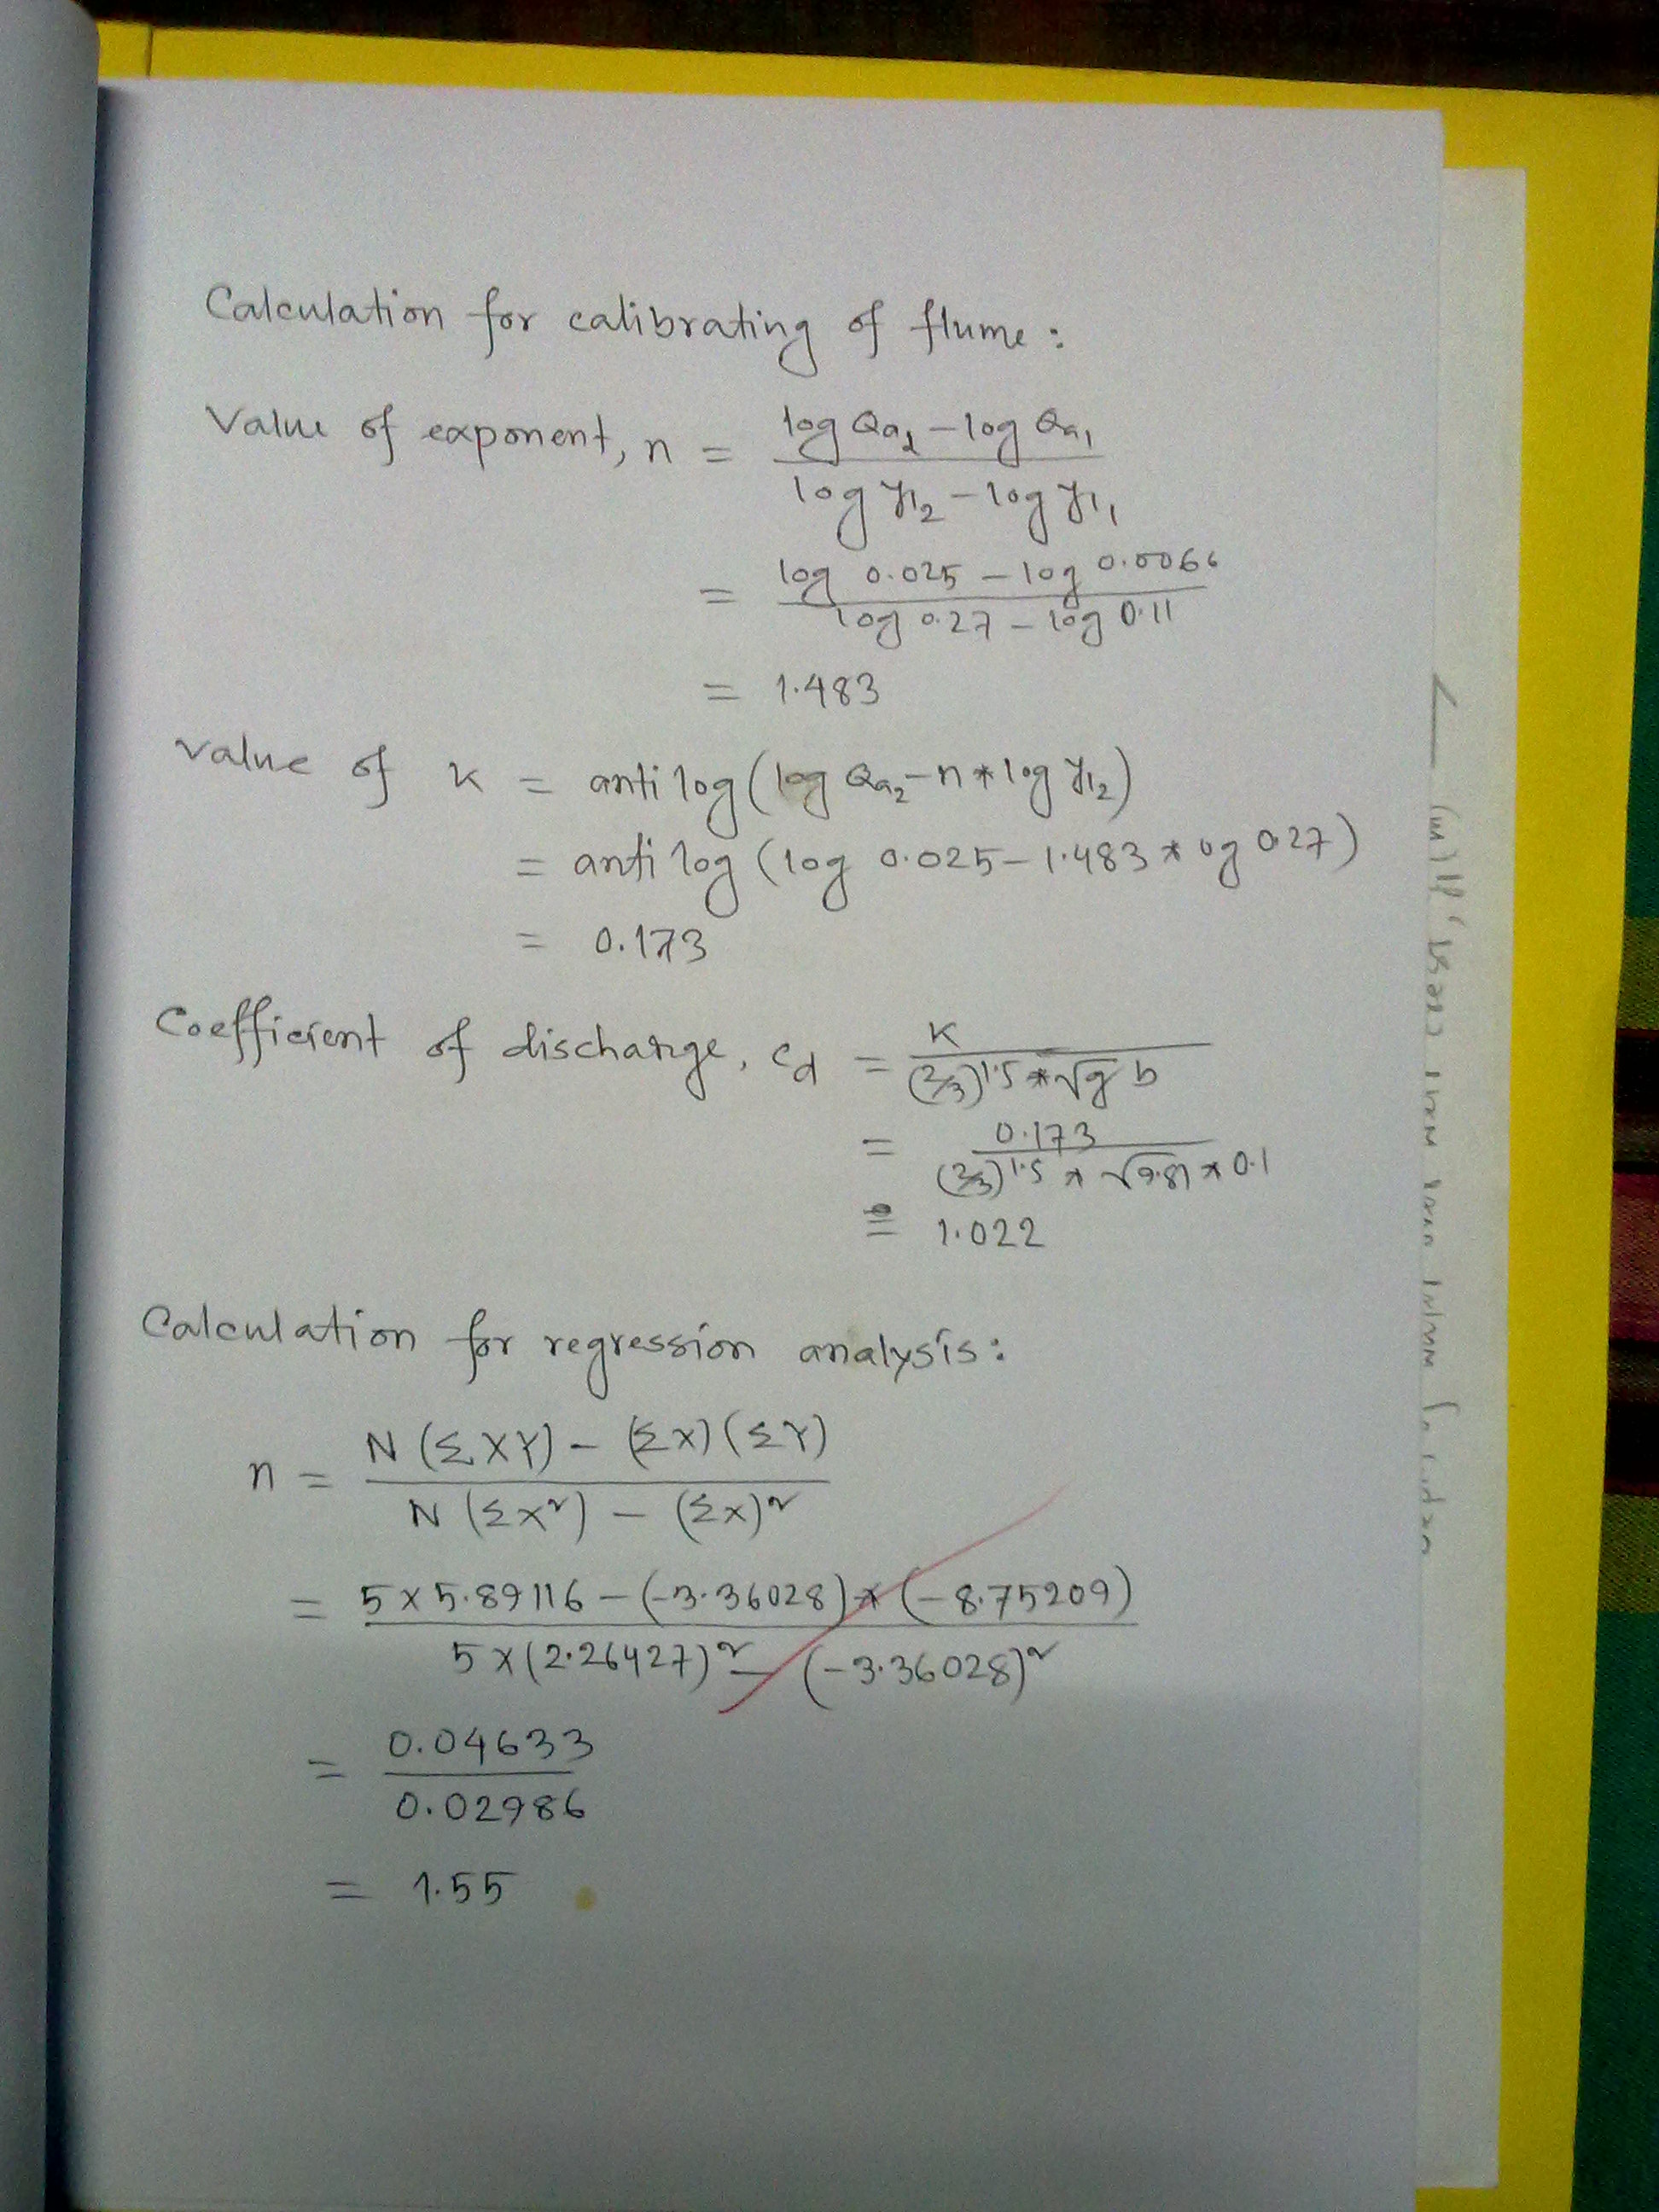 Calculation for calibrating of flume:
Value of exponent, n = (log Qa₂ - log Qa₁) / (log y₁₂ - log y₁₁)
= (log 0.025 - log 0.0066) / (log 0.27 - log 0.11)
= 1.483
Value of K = antilog (log Qa₂ - n * log y₁₂)
= antilog (log 0.025 - 1.483 * log 0.27)
= 0.173
Coefficient of discharge, Cd = K / ((2/3)^1.5 * √g b)
= 0.173 / ((2/3)^1.5 * √9.81 * 0.1)
= 1.022
Calculation for regression analysis:
n = (N (ΣXY) - (ΣX) (ΣY)) / (N (ΣX²) - (ΣX)²)
= (5 × 5.89116 - (-3.36028) * (-8.75209)) / (5 × (2.26427)² - (-3.36028)²)
= 0.04633 / 0.02986
= 1.55